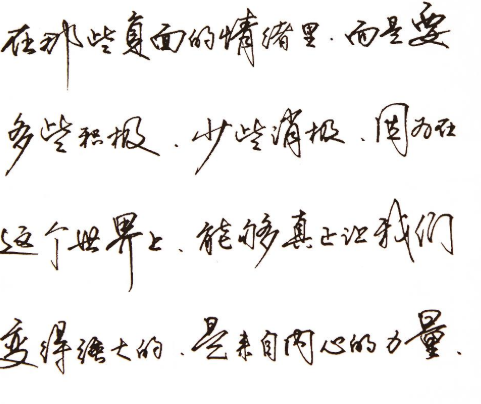 在那些负面的情绪里.而是要
多些积极、少些消极、因为在
这个世界上、能够真正让我们
变得强大的、是来自内心的力量.